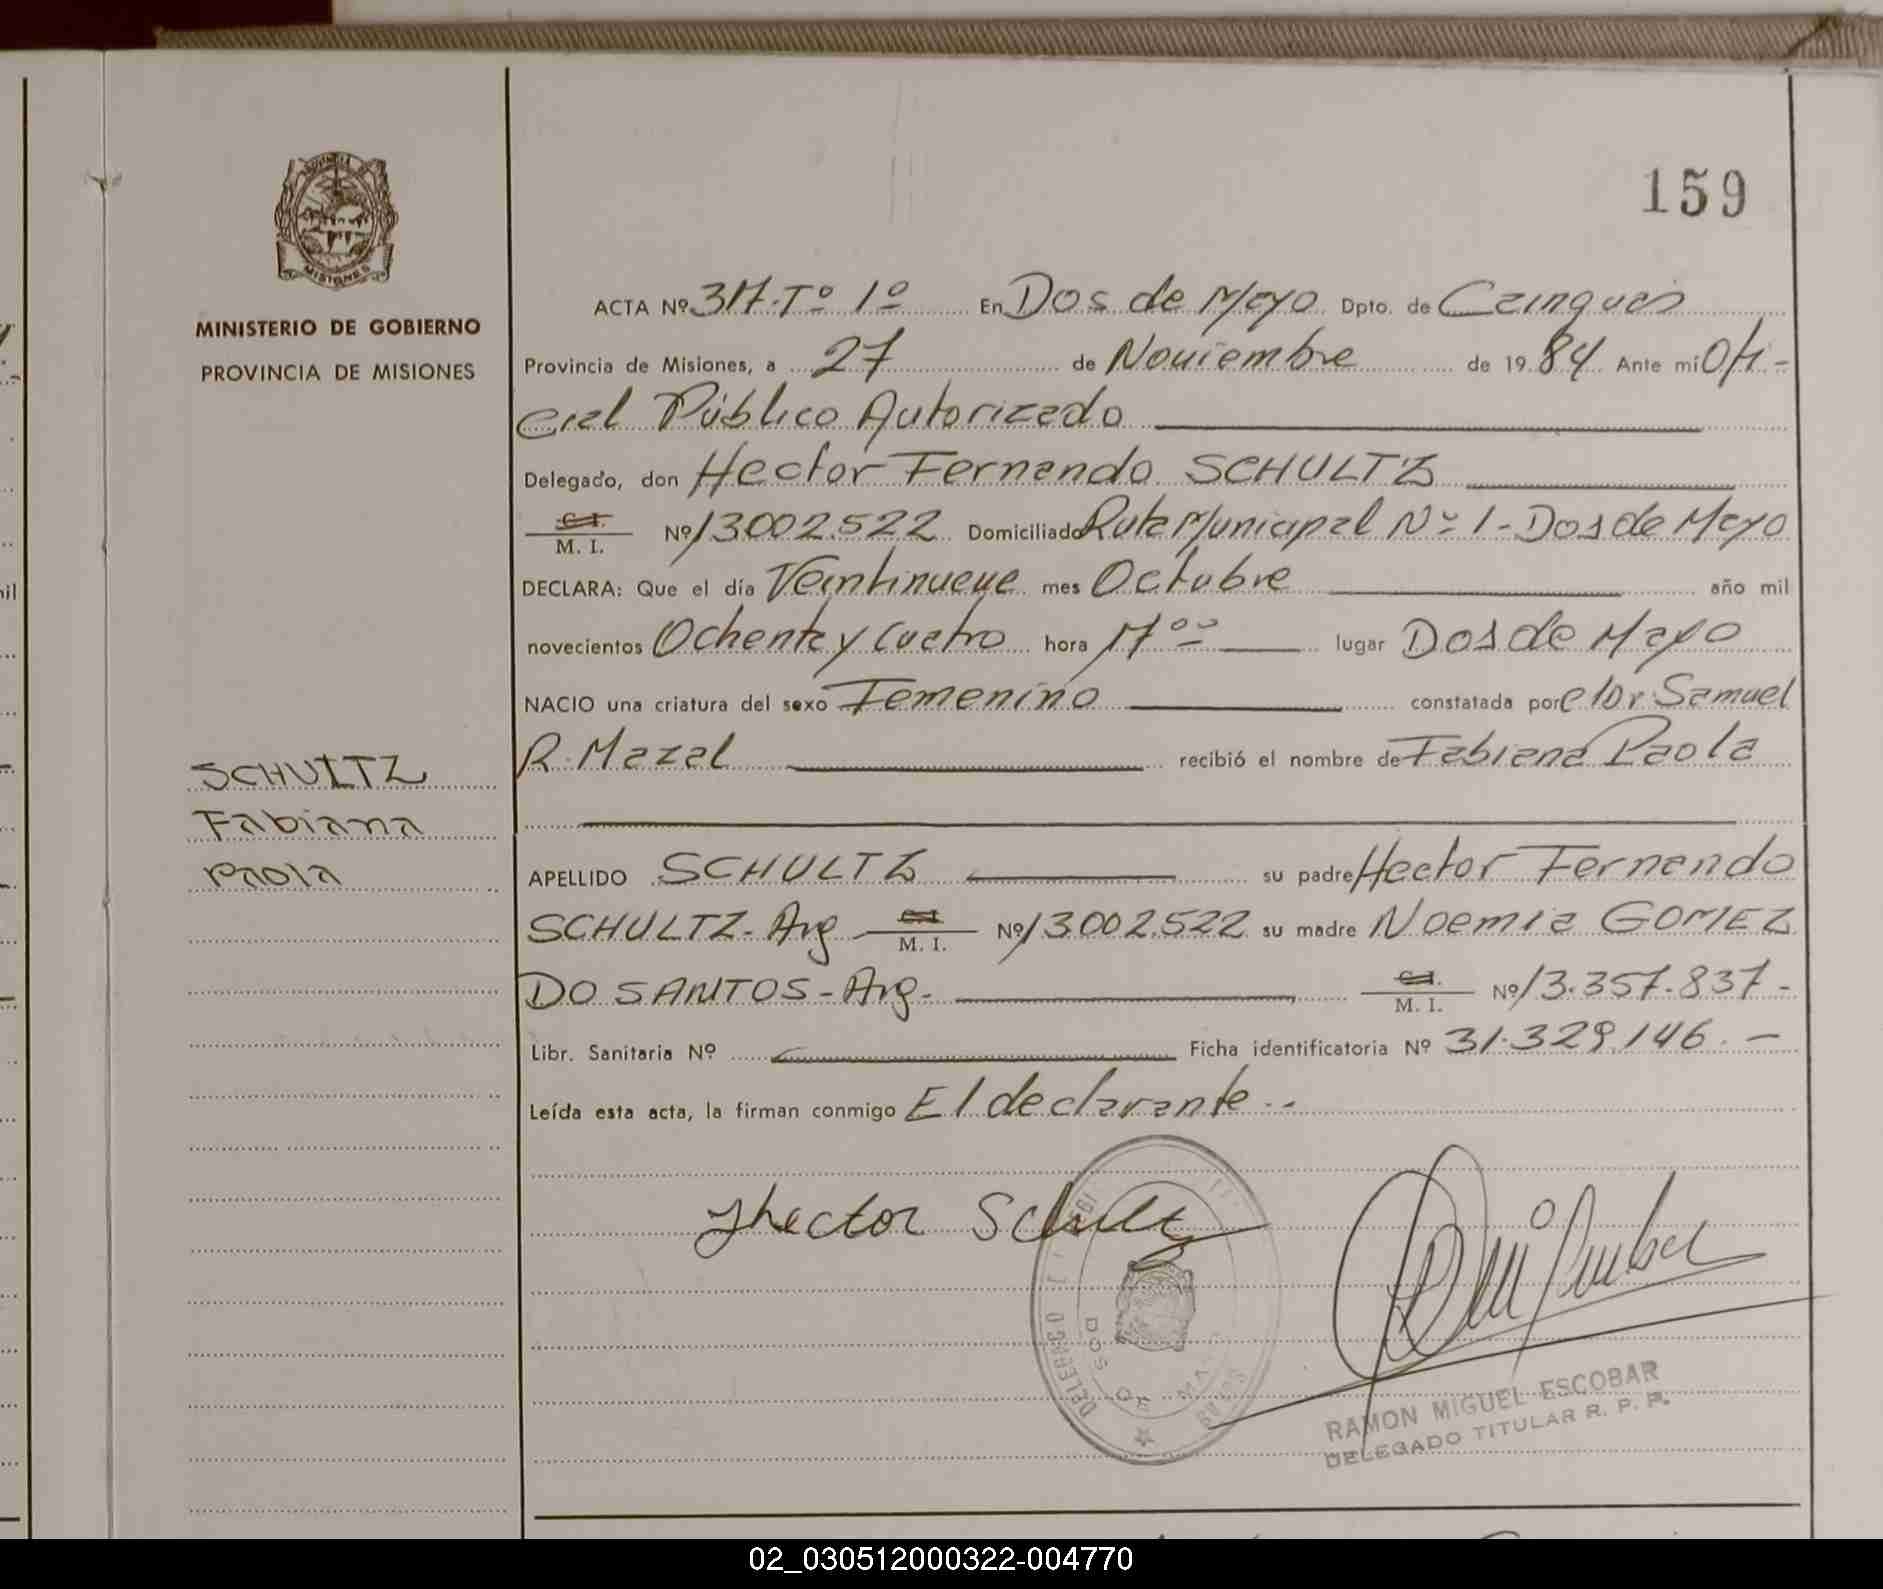 159
PROVINCIA
MISIONES
MINISTERIO DE GOBIERNO
PROVINCIA DE MISIONES
ACTA Nº 317. Tº 1º En Dos de Mayo Dpto. de Cainguas
Provincia de Misiones, a 27 de Noviembre de 1984 Ante mí Ofi-
cial Público Autorizado
Delegado, don Hector Fernando SCHULTZ
C. I.
M. I. Nº 13002.522 Domiciliado Ruta Municipal Nº 1 - Dos de Mayo
DECLARA: Que el día Veintinueve mes Octubre año mil
novecientos Ochenta y Cuatro hora 17 ºº lugar Dos de Mayo
NACIO una criatura del sexo Femenino constatada por el Dr. Samuel
R. Mazal recibió el nombre de Fabiana Paola
SCHULTZ
Fabiana
Paola
APELLIDO SCHULTZ su padre Hector Fernando
SCHULTZ - Arg C. I.
M. I. Nº 13002.522 su madre Noemia GOMEZ
DO SANTOS - Arg. - C. I.
M. I. Nº 13.357.837 -
Libr. Sanitaria Nº Ficha identificatoria Nº 31.329.146. -
Leída esta acta, la firman conmigo El declarante. -
Hector Schultz
DOS DE MAYO
RAMON MIGUEL ESCOBAR
DELEGADO TITULAR R. P. P.
02_030512000322-004770